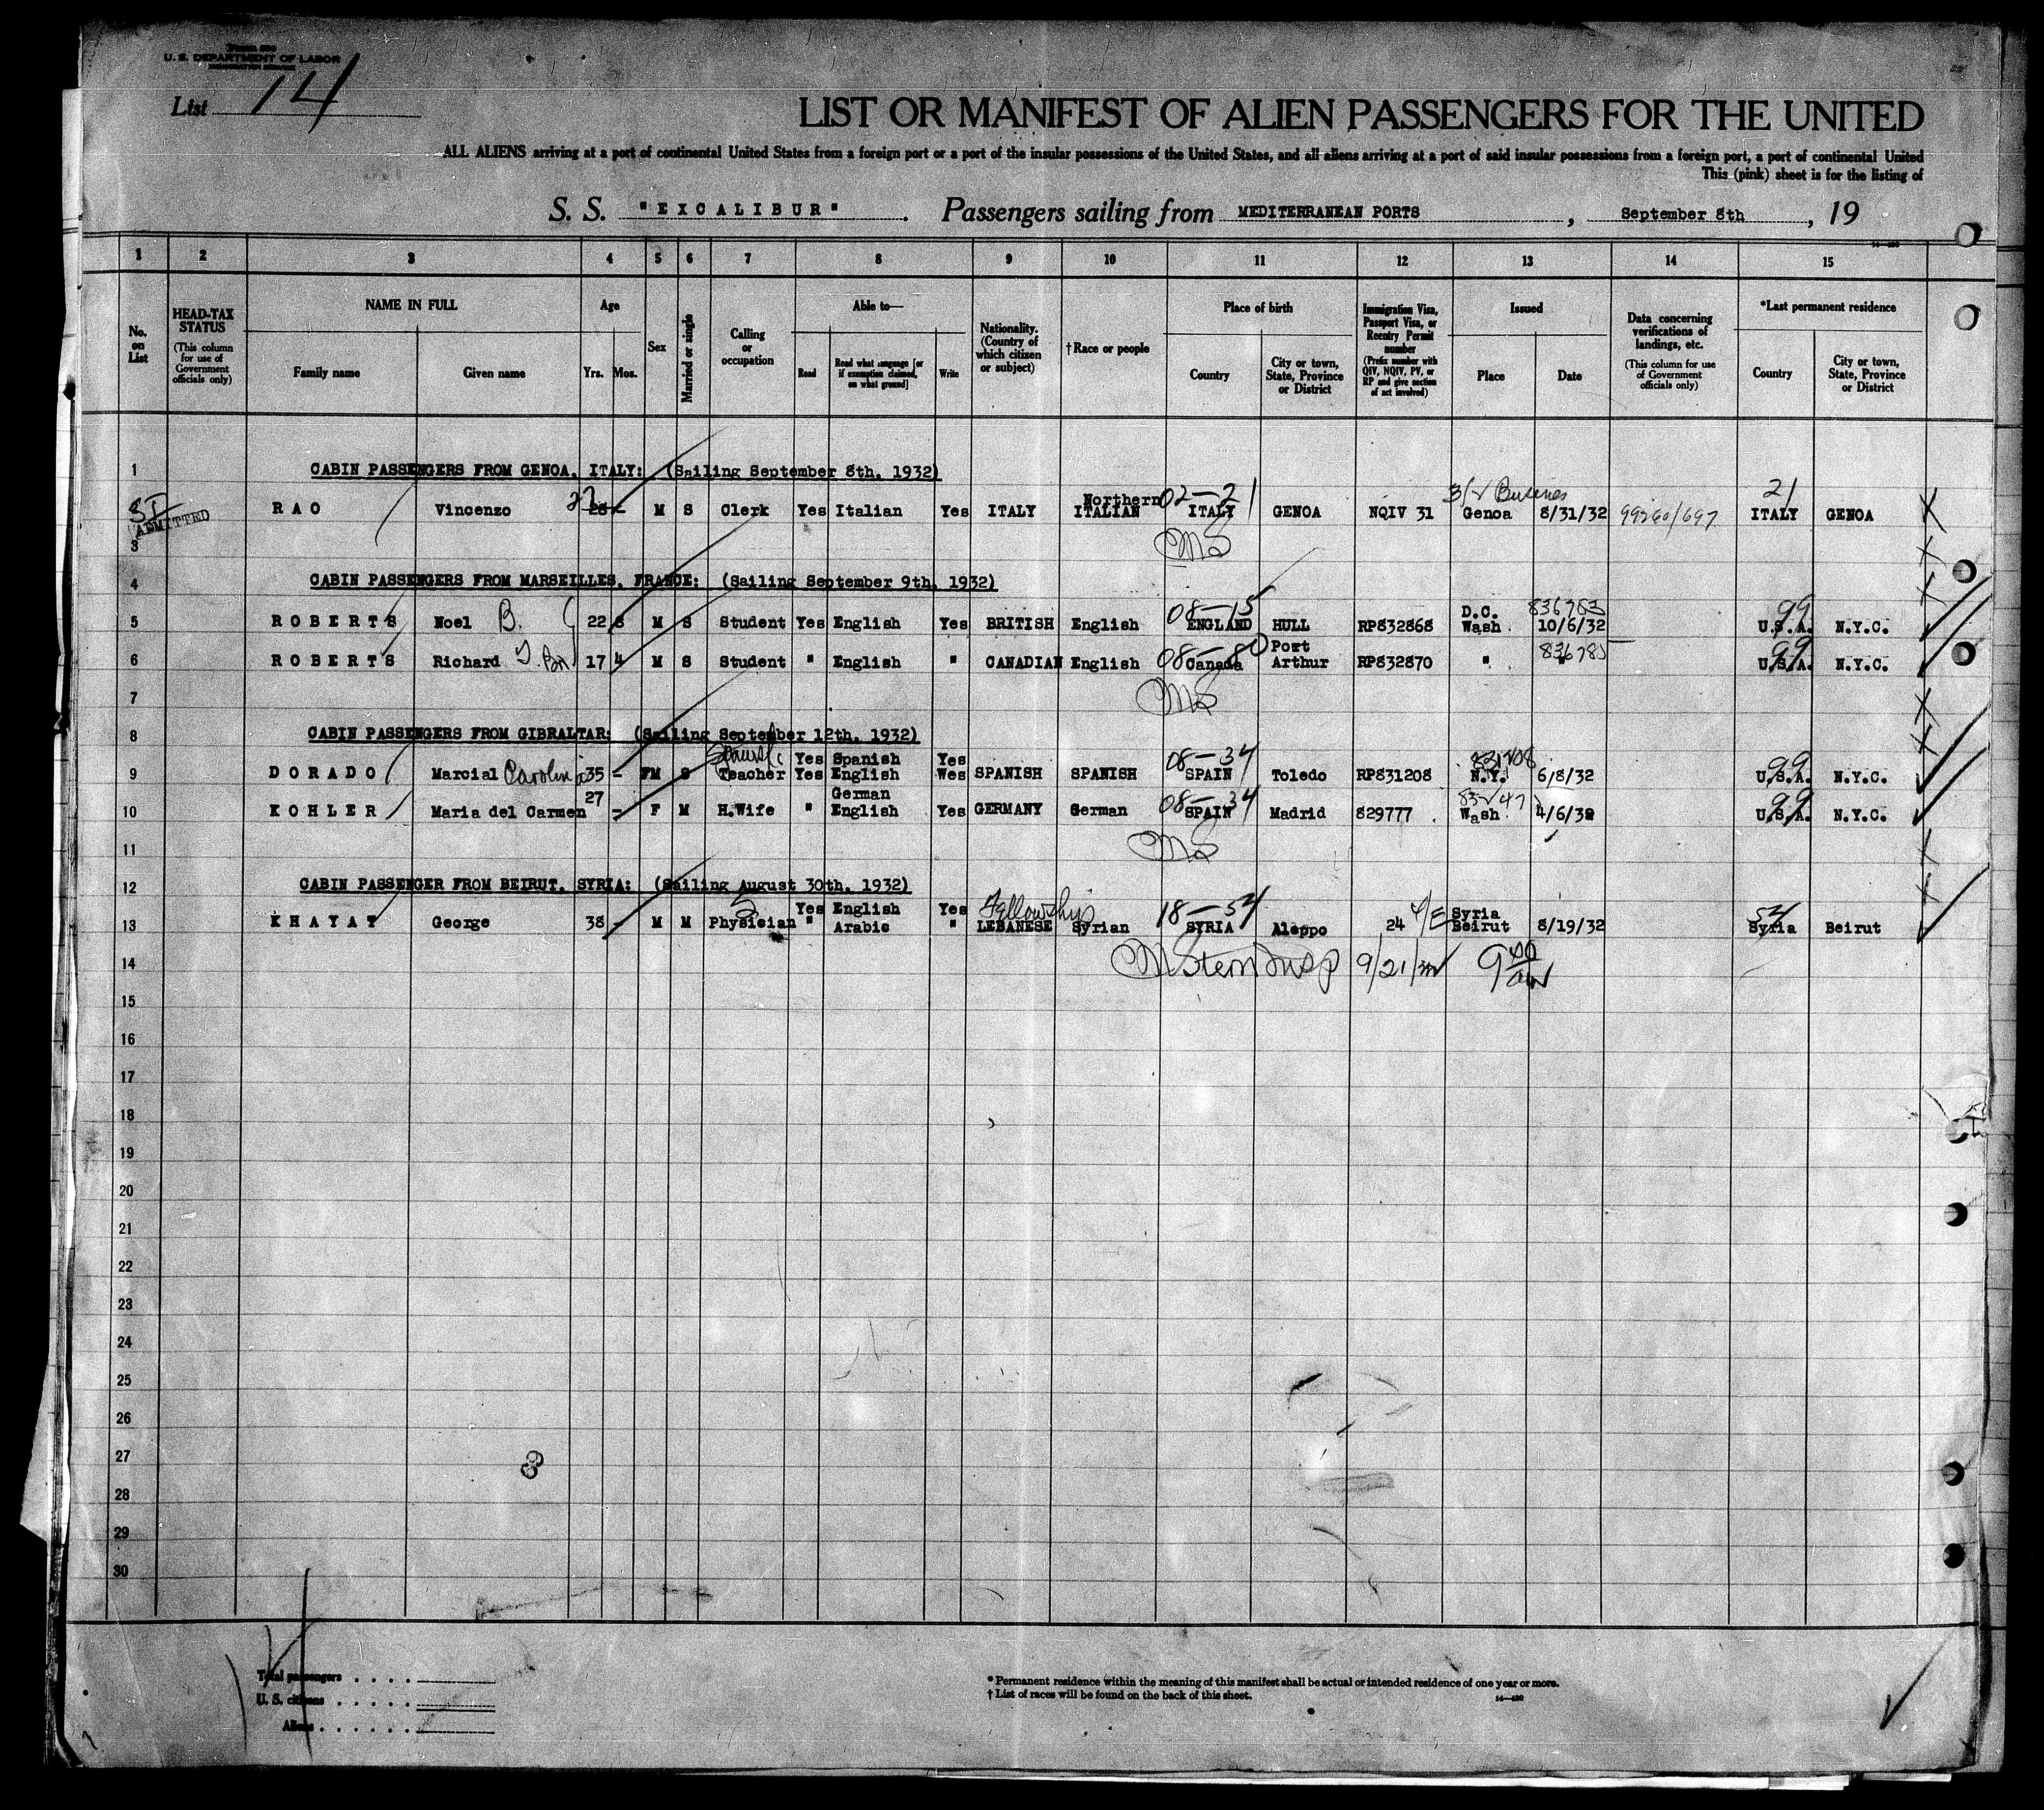 U. S. DEPARTMENT OF LABOR
List 14
LIST OR MANIFEST OF ALIEN PASSENGERS FOR THE UNITED
ALL ALIENS arriving at a port of continental United States from a foreign port or a port of the insular possessions of the United States, and all aliens arriving at a port of said insular possessions from a foreign port, a port of continental United
This (pink) sheet is for the listing of
S. S. "EXCALIBUR" . Passengers sailing from MEDITERRANEAN PORTS , September 8th , 19
1 2 3 4 5 6 7 8 9 10 11 12 13 14 15
No. on List
HEAD-TAX STATUS (This column for use of Government officials only)
NAME IN FULL
Family name Given name
Age
Yrs. Mos.
Sex
Married or single
Calling or occupation
Able to—
Read Read what language [or if exemption claimed, on what ground] Write
Nationality. (Country of which citizen or subject)
†Race or people
Place of birth
Country City or town, State, Province or District
Immigration Visa, Passport Visa, or Reentry Permit number (Prefix number with QIV, NQIV, PV, or RP and give section of act involved)
Issued
Place Date
Data concerning verifications of landings, etc. (This column for use of Government officials only)
*Last permanent residence
Country City or town, State, Province or District
1 CABIN PASSENGERS FROM GENOA, ITALY: (Sailing September 8th, 1932)
Northern 02-21 21
2 SI RAO Vincenzo 27 M S Clerk Yes Italian Yes ITALY ITALIAN ITALY GENOA NQIV 31 Genoa 8/31/32 99260/697 ITALY GENOA
ADMITTED
3 CMS
4 CABIN PASSENGERS FROM MARSEILLES, FRANCE: (Sailing September 9th, 1932)
08-15 D.C. 836783 99
5 ROBERTS Noel B. 22 8 M S Student Yes English Yes BRITISH English ENGLAND HULL RP832868 Wash. 10/6/32 U.S.A. N.Y.C.
08-80 Port 99
6 ROBERTS Richard 17 4 M S Student " English " CANADIAN English Canada Arthur RP832870 " " U.S.A. N.Y.C.
7 CMS
8 CABIN PASSENGERS FROM GIBRALTAR: (Sailing September 12th, 1932)
Spanish Yes Spanish Yes 08-34 99
9 DORADO Marcial Carolina 35 - FM S Teacher Yes English Wes SPANISH SPANISH SPAIN Toledo RP831208 N.Y. 6/8/32 U.S.A. N.Y.C.
27 German 08-34 99
10 KOHLER Maria del Carmen - F M H.Wife " English Yes GERMANY German SPAIN Madrid 829777 Wash. 4/6/32 U.S.A. N.Y.C.
11 CMS
12 CABIN PASSENGER FROM BEIRUT, SYRIA: (Sailing August 30th, 1932)
5 Yes English Yes Fellowship 18-54 4/E Syria 54
13 KHAYAT George 38 - M M Physician " Arabic " LEBANESE Syrian SYRIA Aleppo 24 Beirut 8/19/32 Syria Beirut
14 CM Stern Insp 9/21/32 9
15
16
17
18
19
20
21
22
23
24
25
26
27
28
29
30
Total passengers
U. S. citizens
Aliens
* Permanent residence within the meaning of this manifest shall be actual or intended residence of one year or more.
† List of races will be found on the back of this sheet.